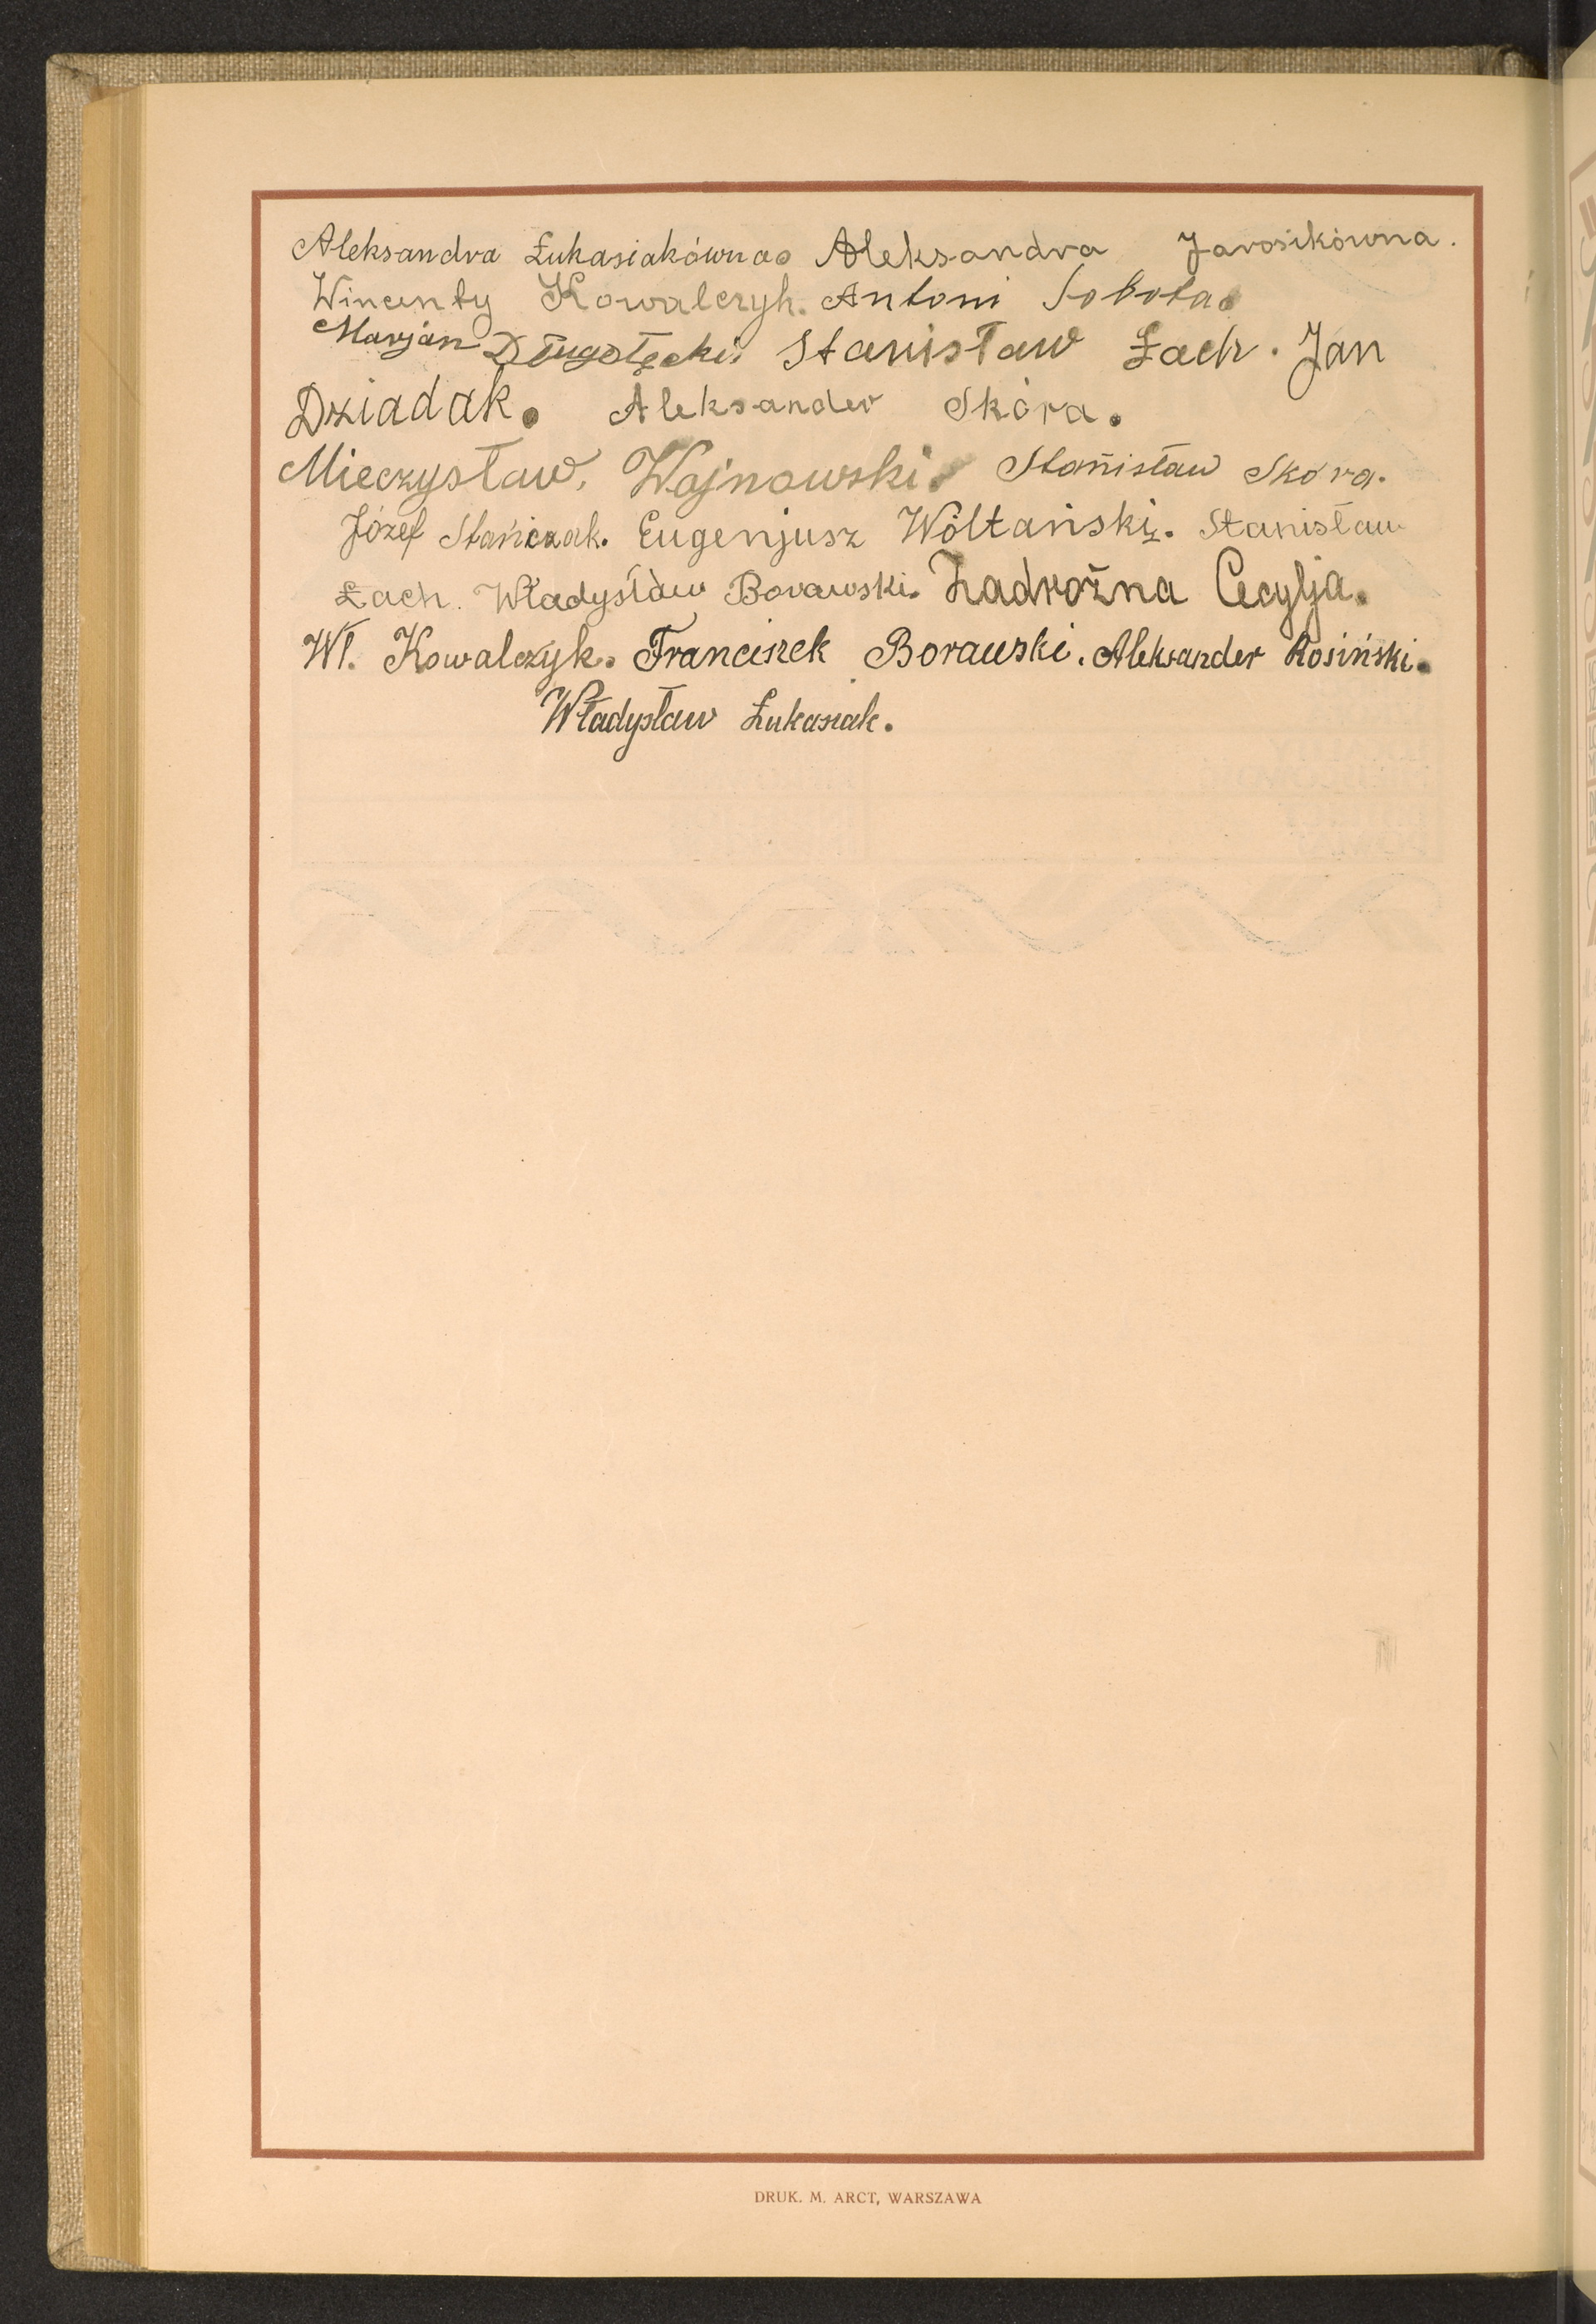 Aleksandra Łukasiakówna. Aleksandra Jarosikówna.
Wincenty Kowalczyk. Antoni Sobota.
Marjan Długołęcki. Stanisław Łach. Jan
Dziadak. Aleksander Skóra.
Mieczysław, Wojnowski. Stanisław Skóra.
Józef Stańczak. Eugenjusz Wółtański. Stanisław
Łach. Władysław Borawski. Zadrożna Cecylja.
Wł. Kowalczyk. Franciszek Borawski. Aleksander Rosiński.
Władysław Łukasiak.
DRUK. M. ARCT, WARSZAWA